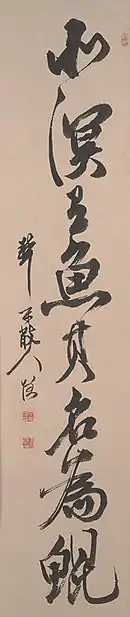 北溟有魚其名為鯤